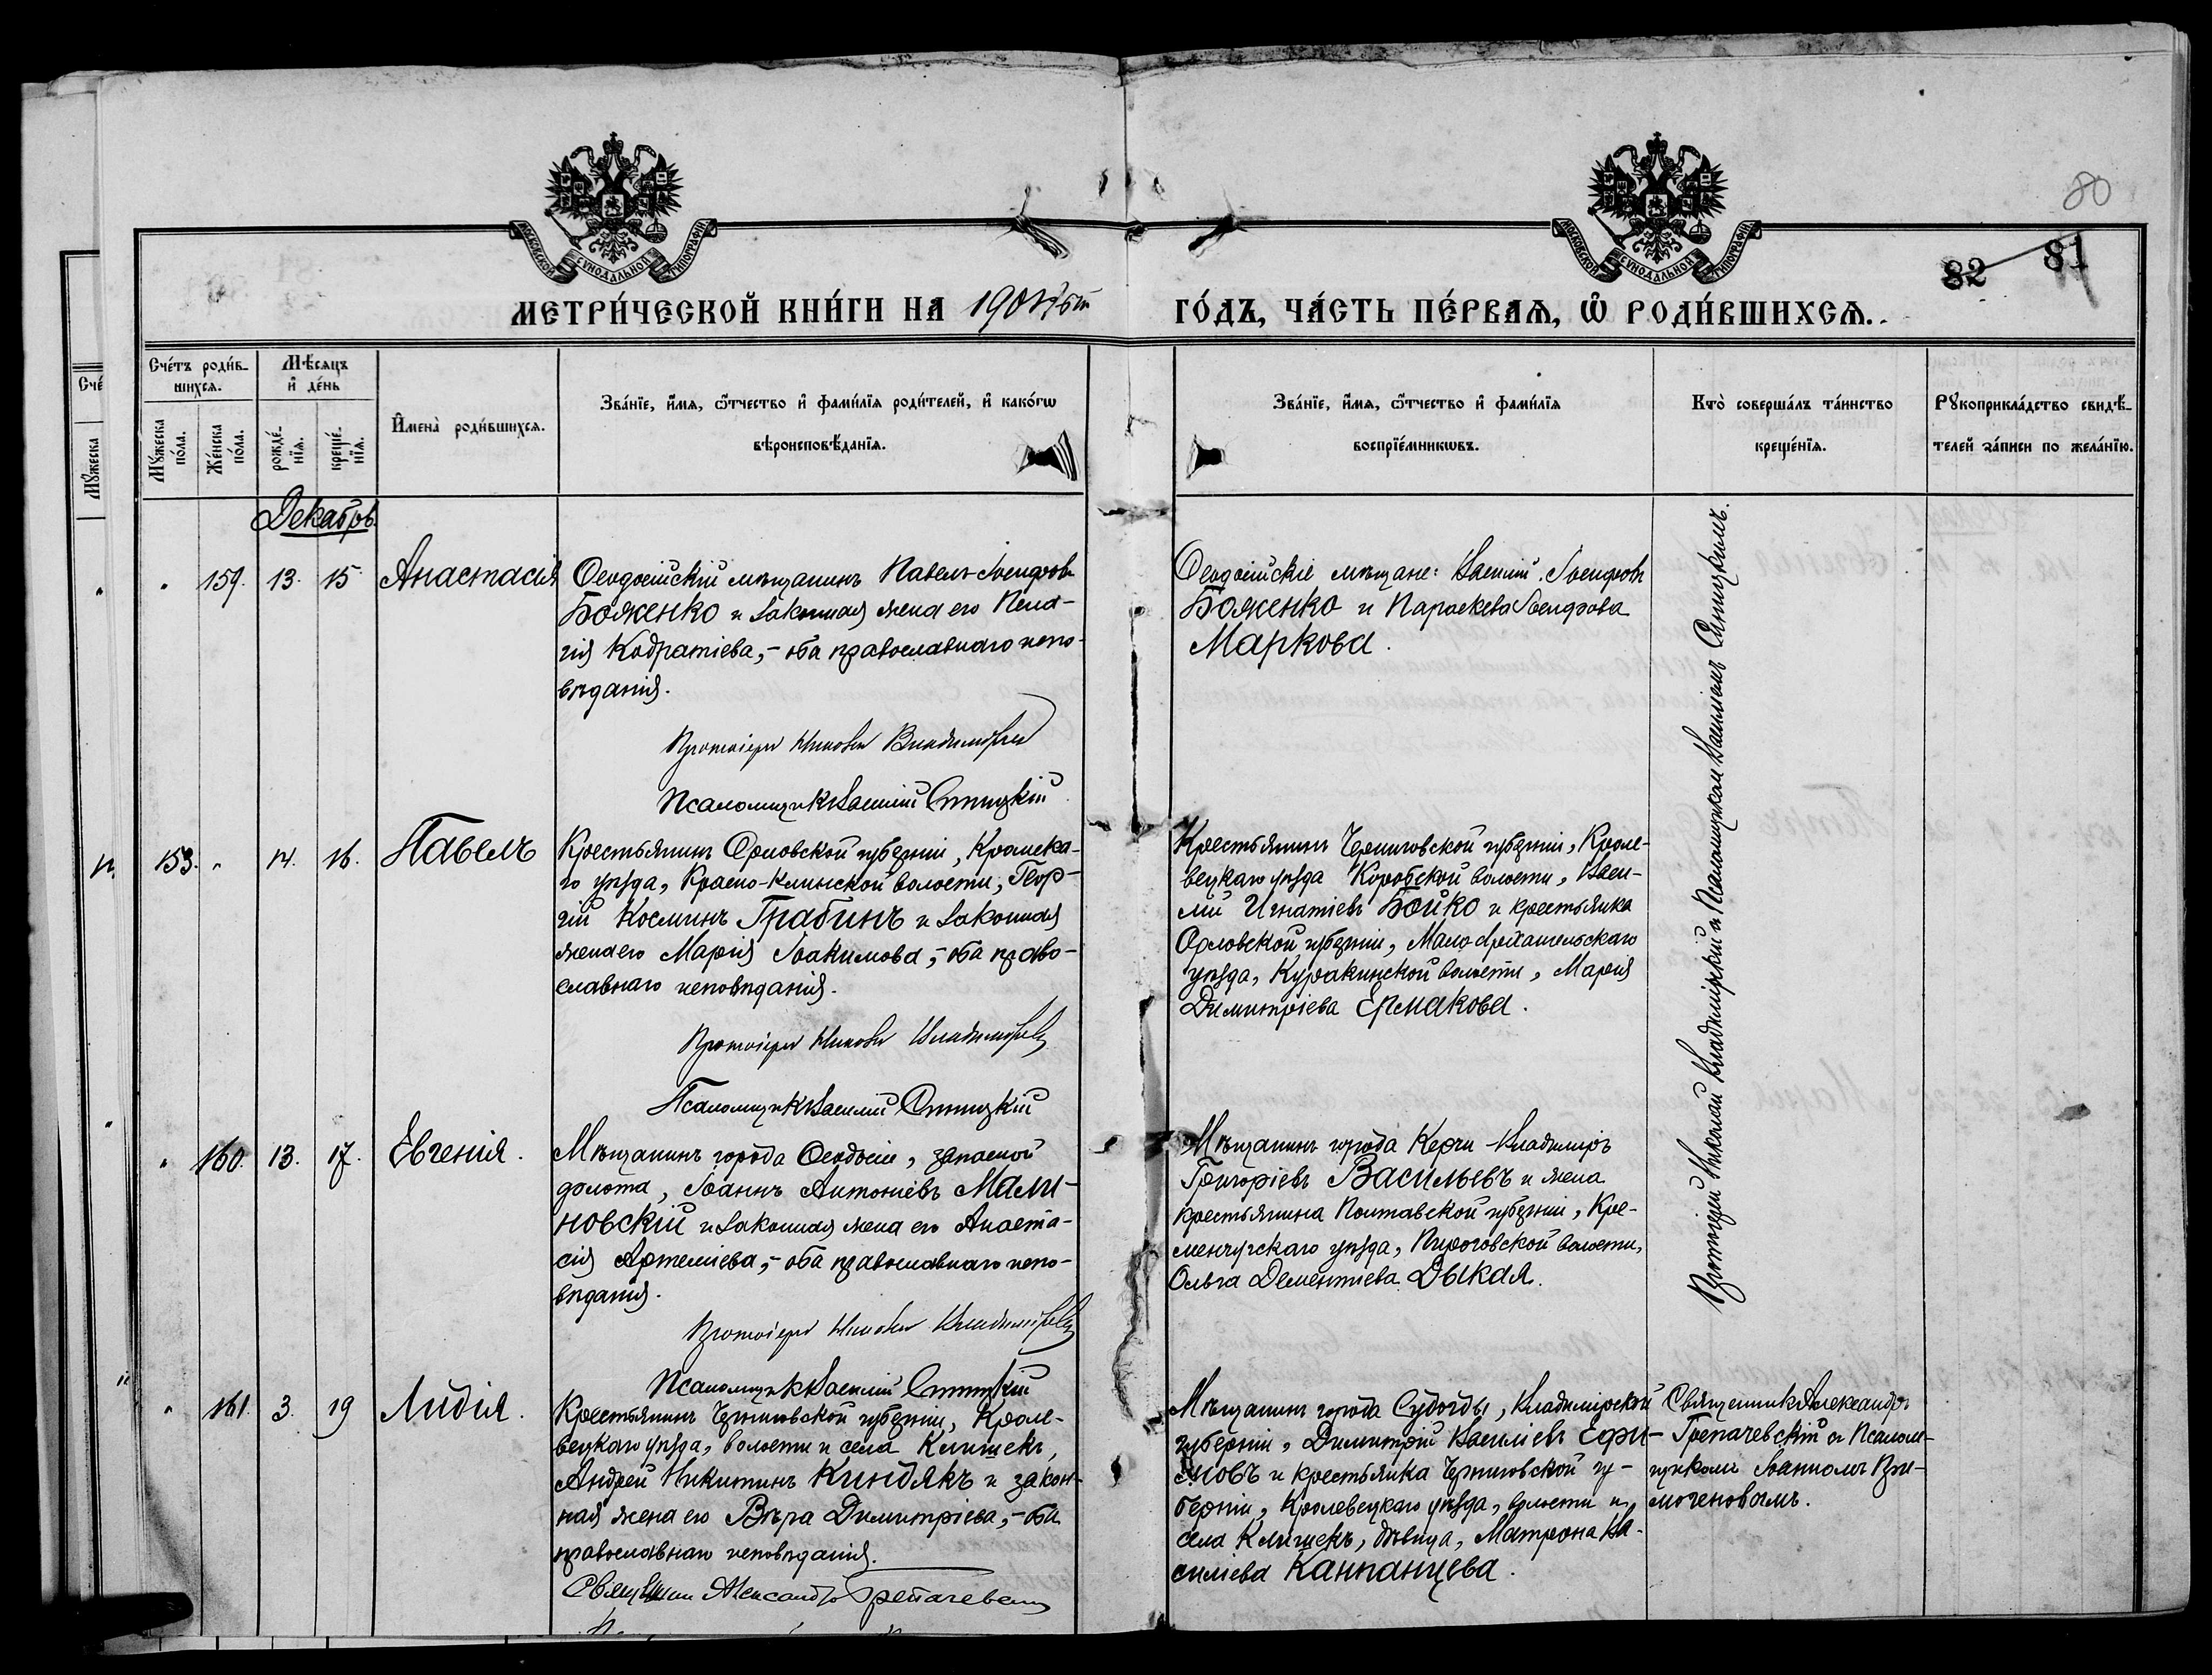 80
82 81
МОСКОВСКОЙ СѴНОДАЛЬНОЙ ТИПОГРАФІИ.
МОСКОВСКОЙ СѴНОДАЛЬНОЙ ТИПОГРАФІИ.
МЕТРИ́ЧЕСКОЙ КНИ́ГИ НА 190
ГО́ДЪ, ЧА́СТЬ ПЕ́РВАЯ, Ѿ РОДИ́ВШИХСЯ.
Счѐтъ роди́в-
шихся.
Мꙋ́жеска по́ла.
Же́нска по́ла.
Мѣ́сяцъ и де́нь
рожде́-нїя.
креще́-нїя.
Имена̀ роди́вшихся.
Зва́нїе, и́мя, ѻ́тчество и фами́лїя роди́телей, и како́гѡ
вѣроисповѣ́данїя.
Зва́нїе, и́мя, ѻ́тчество и фами́лїя
воспрїе́мникѡвъ.
Кто̀ соверша́лъ та́инство
креще́нїя.
Рꙋкоприкла́дство свидѣ́-
телей за́писи по жела́нїю.
Сче
Мꙋжеска
Декабрь
" 159. 13. 15. Анастасія
Ѳеодосійскій мѣщанинъ Павелъ Іосифовъ
Боженко и законная жена его Пела-
гія Кодратіева,- оба православнаго испо-
вѣданія.
Протоіерей Николай Владимірскій
Псаломщикъ Василій Синицкій
Ѳеодосійскіе мѣщане: Василій Іосифовъ
Боженко и Параскева Іосифова
Маркова.
Протоіерей Николай Владимірскій и Псаломщикомъ Василіемъ Синицкимъ.
153. " 14. 16. Павелъ
Крестьянинъ Орловской губерніи, Кромска-
го уѣзда, Красно-Клинской волости, Геор-
гій Косминъ Грабинъ и законная
жена его Марія Іоакимова,- оба право-
славнаго исповѣданія.
Протоіерей Николай Владимірскій
Псаломщикъ Василій Синицкій
Крестьянинъ Черниговской губерніи, Кроле-
вецкаго уѣзда Коробской волости, Васи-
лій Игнатіевъ Бойко и крестьянка
Орловской губерніи, Малоархангельскаго
уѣзда, Куракинской волости, Марія
Димитріева Ермакова.
" 160. 13. 17. Евгенія.
Мѣщанинъ города Ѳеодосіи, запасной
флота, Іоаннъ Антоніевъ Мали-
новскій и законная жена его Анаста-
сія Артеміева,- оба православнаго испо-
вѣданія.
Протоіерей Николай Владимірскій
Псаломщикъ Василій Синицкій
Мѣщанинъ города Керчи Владиміръ
Григоріевъ Васильевъ и жена
крестьянина Полтавской губерніи, Кре-
менчугскаго уѣзда, Пироговской волости,
Ольга Дементіева Дыкая.
" 161. 3. 19 Лидія.
Крестьянинъ Черниговской губерніи, Кроле-
вецкаго уѣзда, волости и села Клишекъ,
Андрей Никитинъ Киндякъ и закон-
ная жена его Вѣра Димитріева,- оба
православнаго исповѣданія.
Священникъ Александръ Трепачевскій
Мѣщанинъ города Судогды, Владимірской
губерніи, Димитрій Василіевъ Ефи-
мовъ и крестьянка Черниговской гу-
берніи, Кролевецкаго уѣзда, волости и
села Клишекъ, дѣвица, Матрона Ва-
силіева Канпанцева.
Священникъ Александръ
Трепачевскій съ Псалом-
щикомъ Іоанномъ